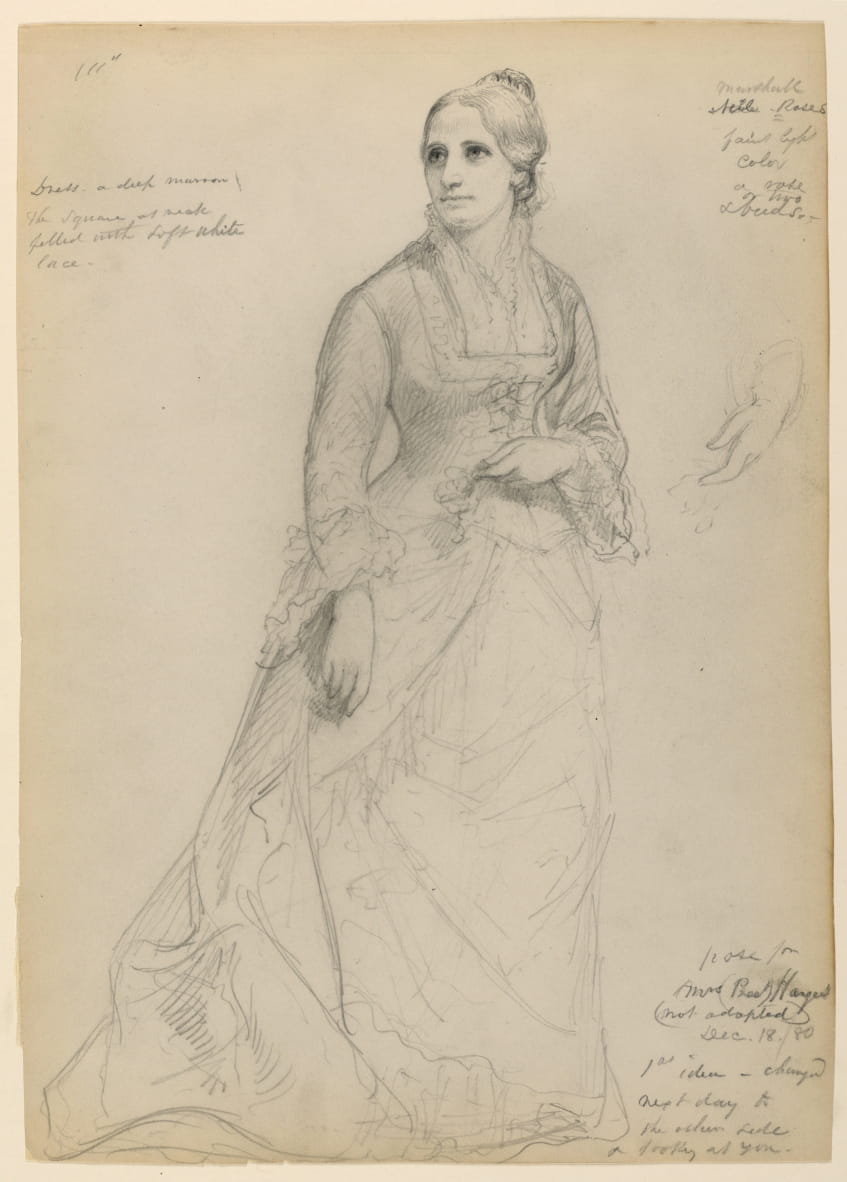 111"
Dress - a deep maroon
the square at neck
filled with soft white
lace -
Marshall
Niele - Roses
faint light
color
a rose
or two
& buds -
pose for
Mrs (Beek)
(not adopted)
Dec. 18. / 80
1st idea - changed
next day to
the other side
& looking at you -